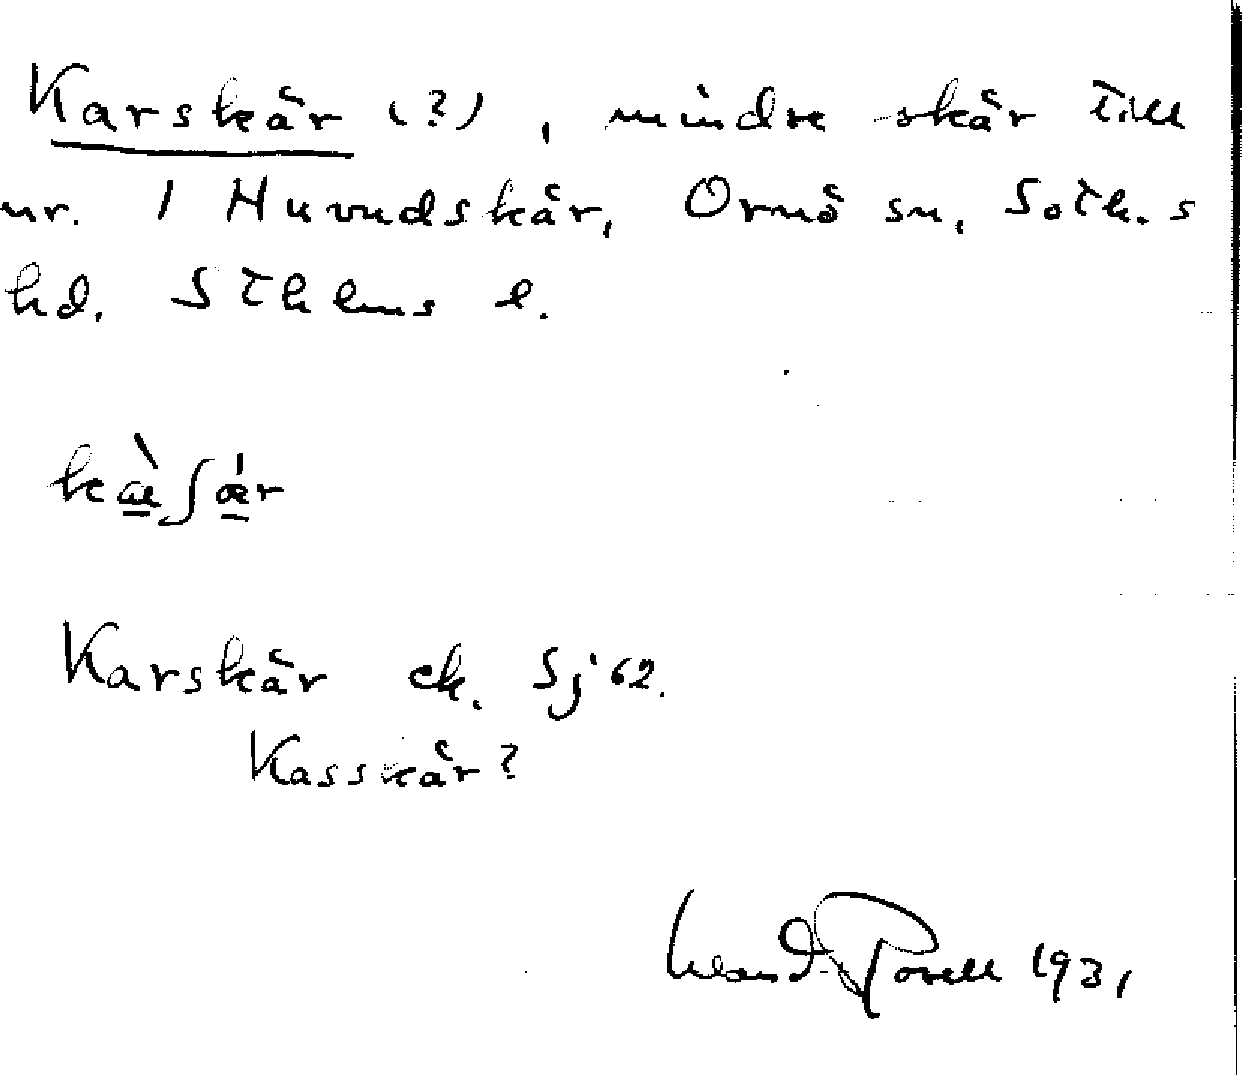 Karskär (?), mindre skär till
nr. 1 Huvudskär, Ornö sn, Soth.s
hd. Sthlms l.
kæ̀ʃǽr
Karskär ek. Sj 62.
Kasskär?
1931